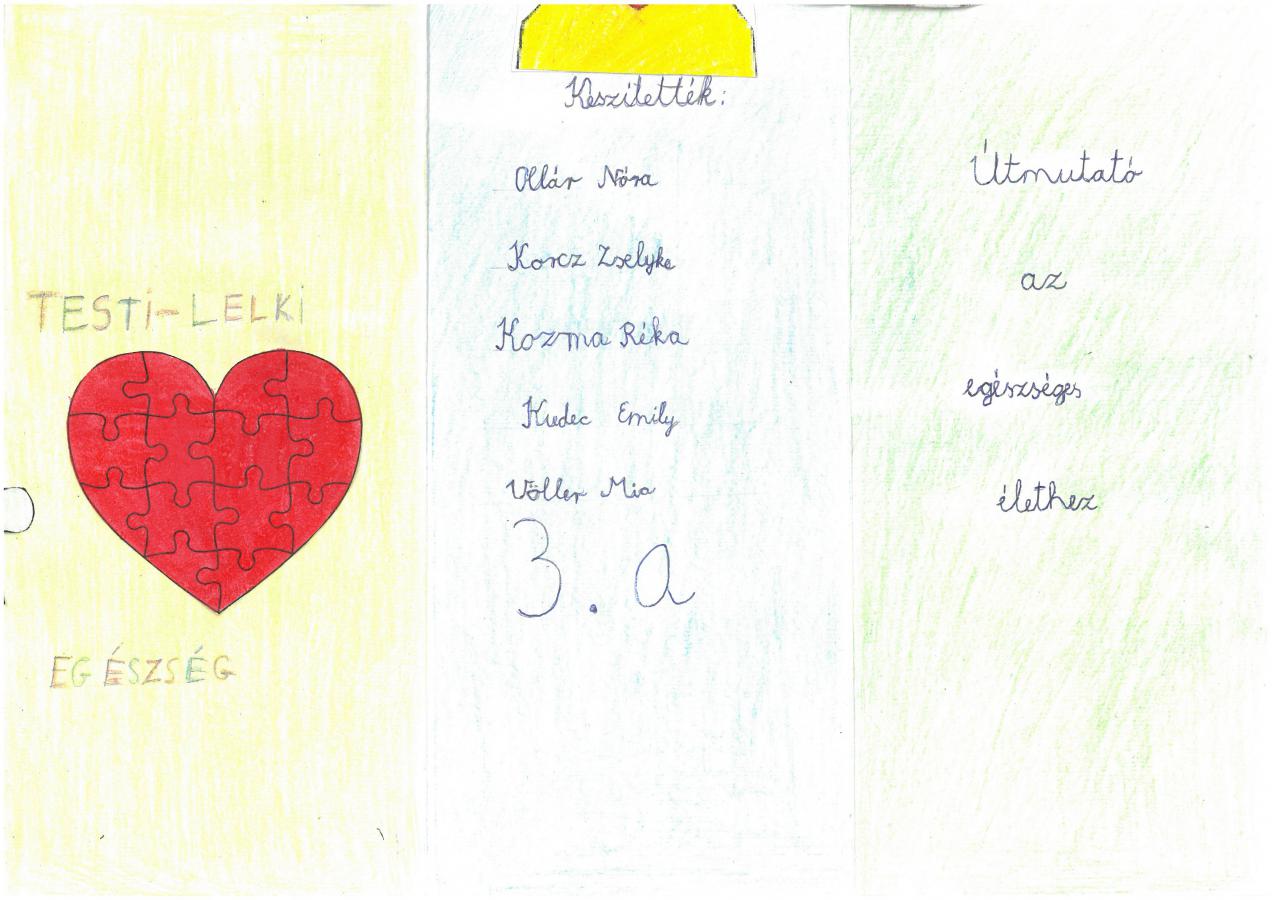 TESTI-LELKI
EGÉSZSÉG
Készítették:
Ollár Nóra
Korcz Zselyke
Kozma Réka
Kudec Emily
Völler Mia
3. a
Útmutató
az
egészséges
élethez